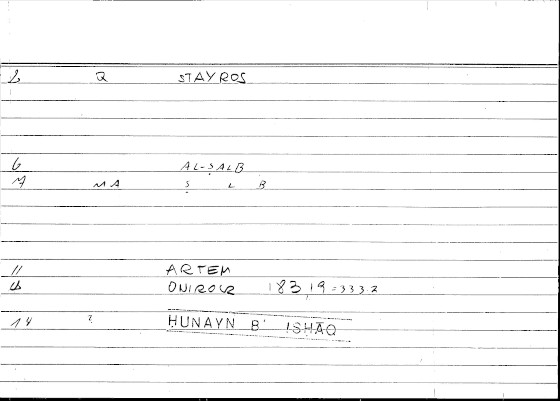 2 Q STAYROS
6 AL-ṢALB
7 MA Ṣ L B
11 ARTEM
ONIROCR 183,19 = 333.2
14 ? HUNAYN B' ISHĀQ